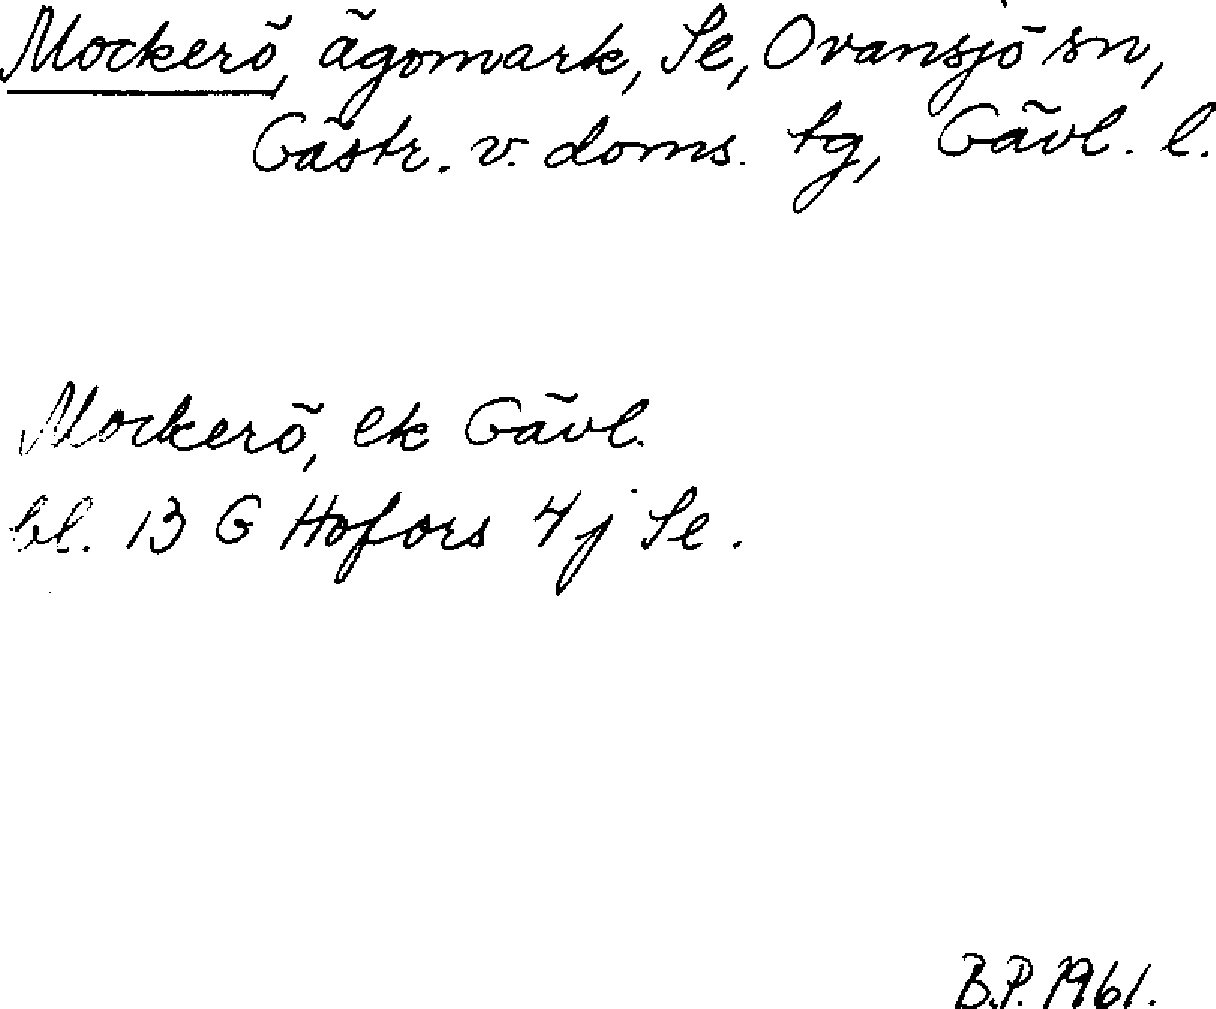 Mockerö, ägomark, Se, Ovansjö sn,
Gästr. v. doms. tg, Gävl. l.
Mockerö, ek Gävl.
bl. 13 G Hofors 4 j Se.
B.P. 1961.